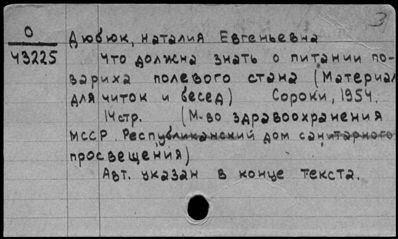 3
О
43225
Дюбюк, Наталия Евгеньевна
Что должна знать о питании по-
вариха полевого стана (Материал
для читок и бесед) Сороки, 1954.
14стр. (М-во здравоохранения
МССР. Республиканский дом санитарного
просвещения)
Авт. указан в конце текста.